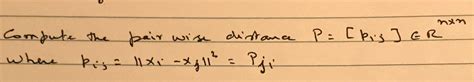 Compute the pair wise distance P = [Pij] ∈ R^{n×n}
where Pij = ||xi - xj||² = Pji